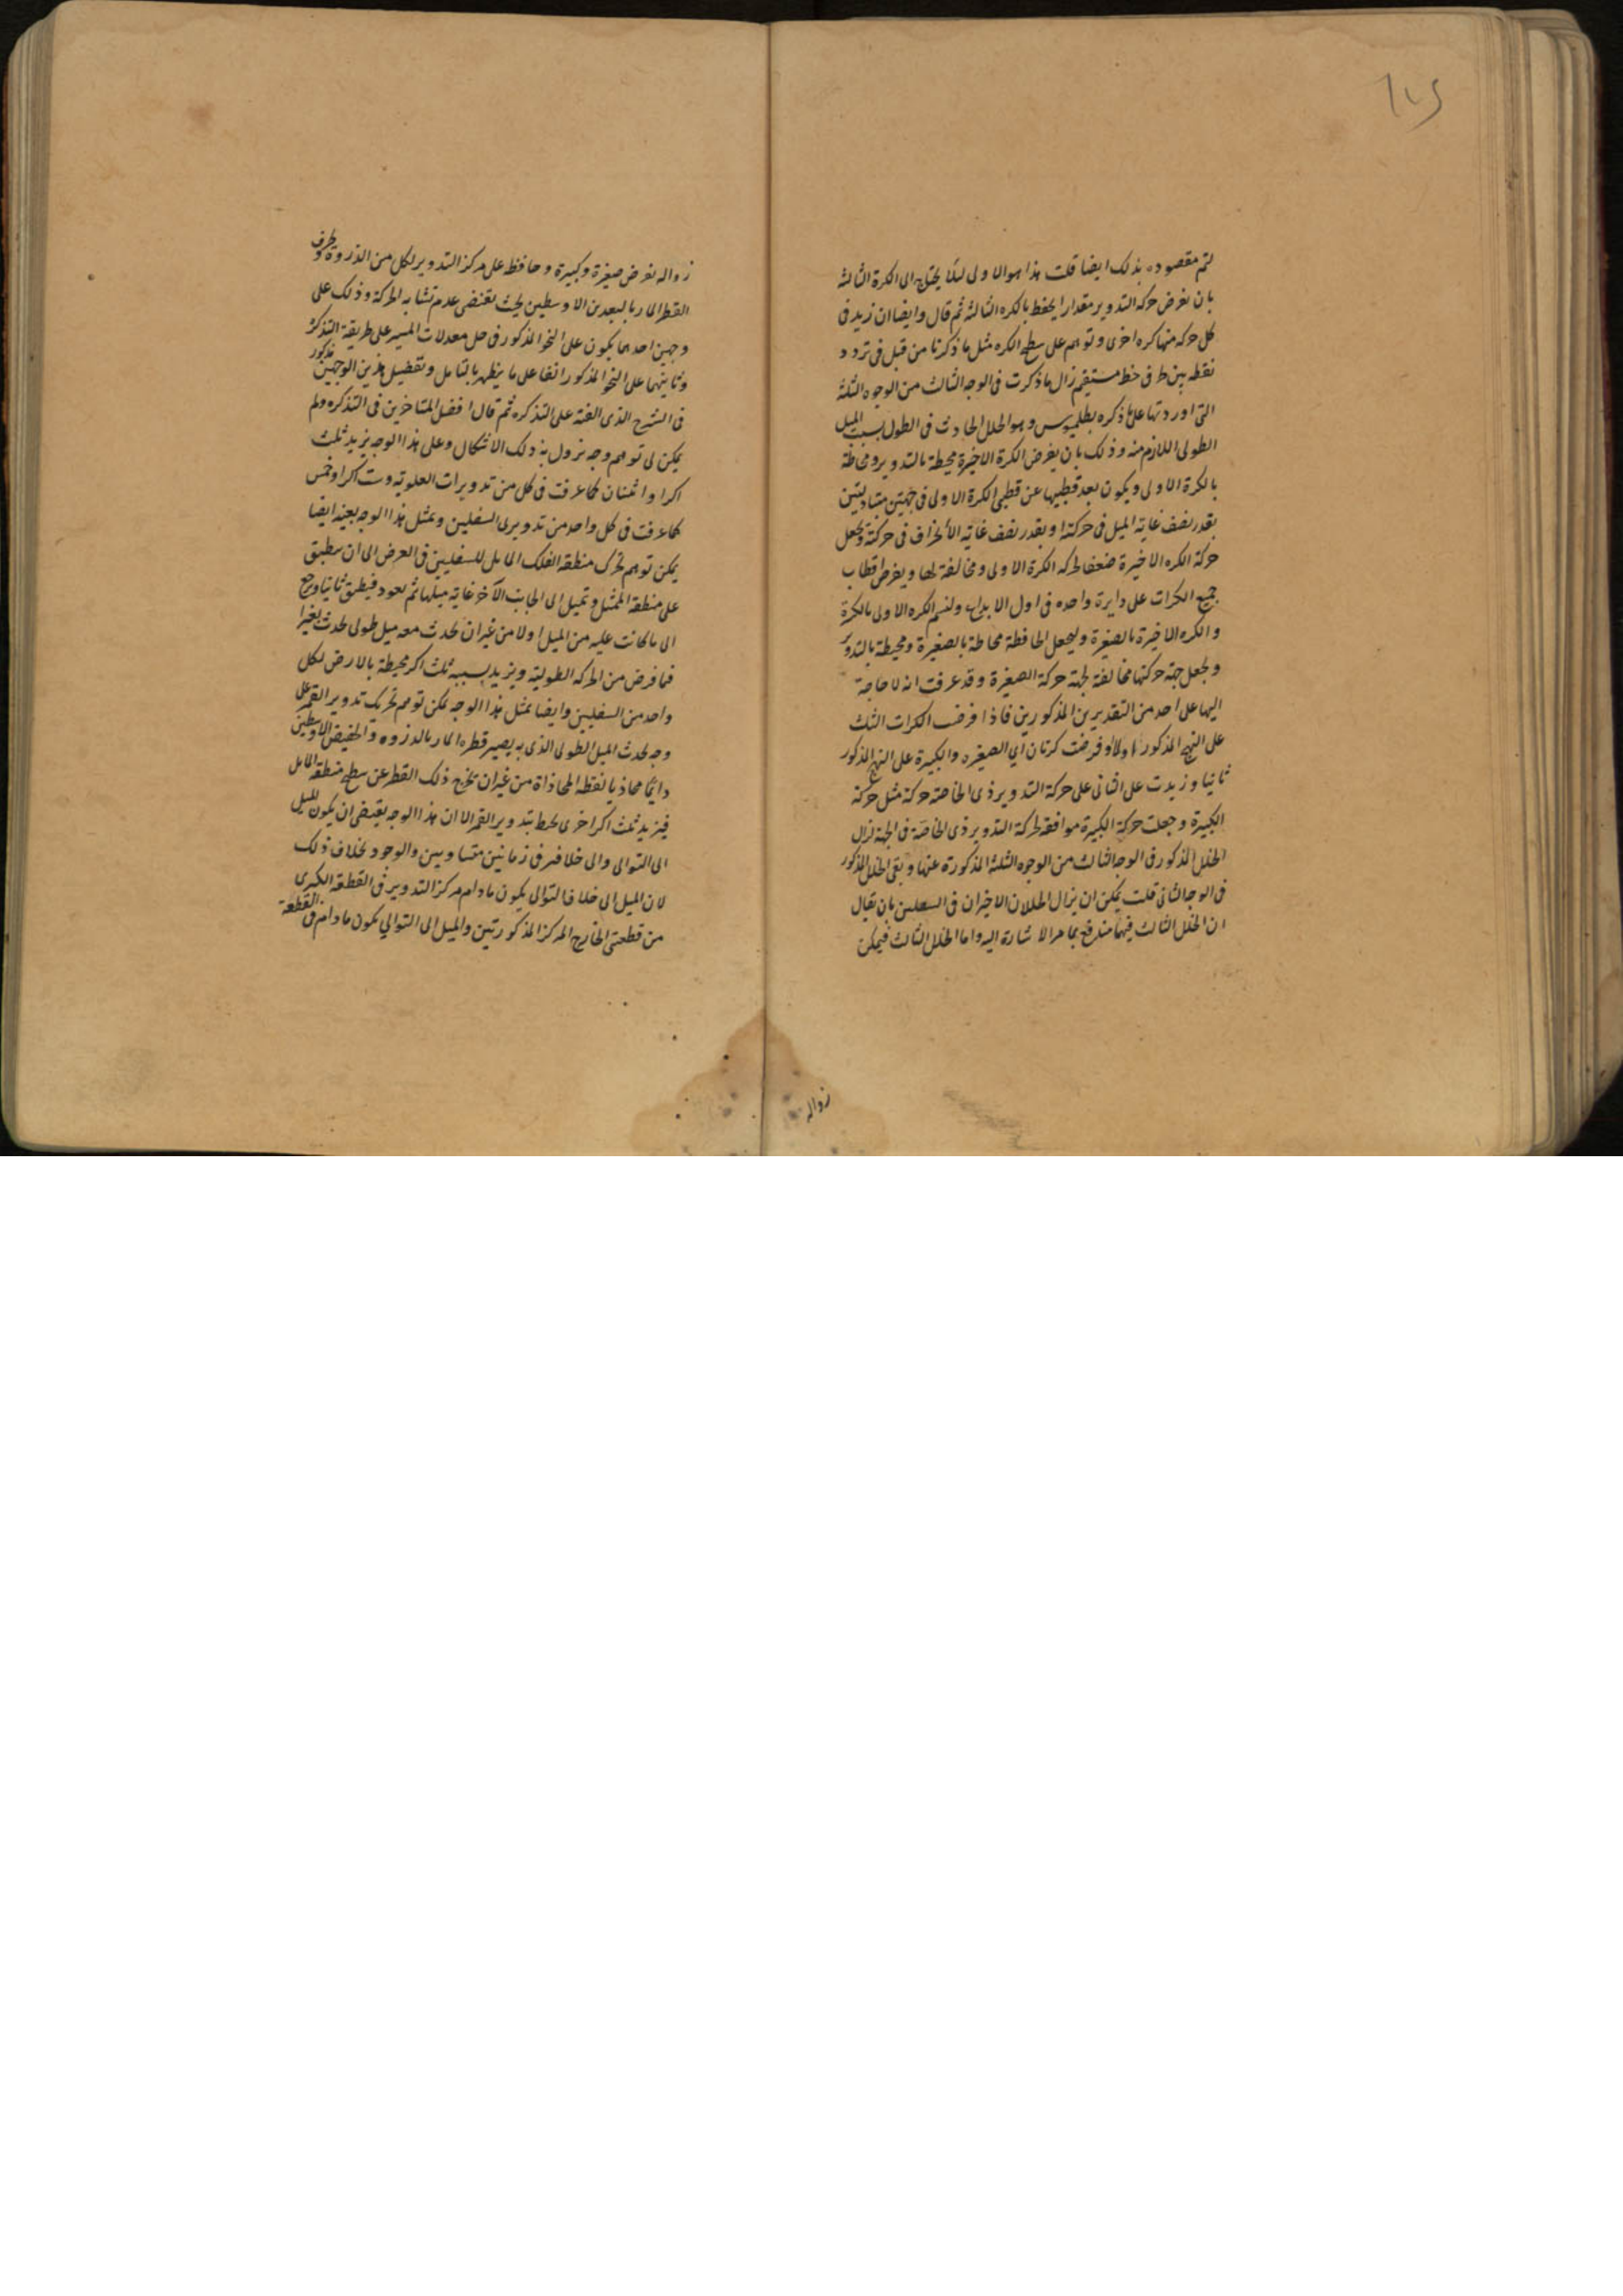 لتم مقصوده بذلك ايضا قلت هذا هو الاولى لئلا يحتاج الى الكرة الثالثة
بان نفرض حركه التدوير مقدارا يحفظ بالكره الثالثة ثم قال وايضا ان زيد فى
كل حركه منها كره اخرى وتوهم على سطح الكره مثل ما ذكرنا من قبل فى تردد
نقطه بين ط فى خط مستقيم زال ما ذكرت فى الوجه الثالث من الوجوه الثلثة
التى اوردتها على ما ذكره بطلميوس وهو الخلل الحادث فى الطول بسبب الميل
الطولى اللازم منه وذلك بان يفرض الكرة الاخيرة محيطة بالتدوير ومحاطة
بالكرة الاولى ويكون بعد قطبيها عن قطبى الكرة الاولى فى جهتين متبادلتين
بقدر نصف غاية الميل فى حركة او بقدر نصف غاية الانحراف فى حركة ويجعل
حركة الكره الاخيرة ضعف حركه الكرة الاولى ومخالفة لها ويفرض اقطاب
جميع الكرات على دايرة واحده فى اول الابداء ولنسم الكره الاولى بالكبرة
والكره الاخيرة بالصغيرة وليجعل الحافظة محاطة بالصغيرة ومحيطة بالتدوير
ويجعل جهة حركتها مخالفة لجهة حركة الصغيرة وقد عرفت انه لا حاجة
اليها على احد من التقديرين المذكورين فاذا فرضت الكرات الثلث
على النهج المذكور اولا او فرضت كرتان اى الصغيره والكبيرة على النهج المذكور
ثانيا وزيدت على الثانى على حركة التدوير ذى الخاصة حركة مثل حركة
الكبيرة وجعلت حركة الكبيرة موافقه لحركة التدوير ذى الخاصة فى الجهة لزال
الخلل المذكور فى الوجه الثالث من الوجوه الثلثة المذكورة عنها وبقى الخلل المذكور
فى الوجه الثانى قلت يمكن ان يزال الخللان الاخيران فى السفلين بان يقال
ان الخلل الثالث فيهما مندفع بما مر الاشارة اليه واما الخلل الثالث فيمكن
زواله
زواله بفرض صغيرة وكبيرة وحافظ على مركز التدوير لكل من الذروة وطرف
القطر المار بالبعدين الاوسطين بحيث يقتضى عدم تشابه الحركة وذلك على
وجهين احدهما يكون على النحو المذكور فى حل معدلات المسير على طريقة التذكرة
وثانيهما على النحو المذكور انفا على ما يظهر بالتامل وتفصيل هذين الوجهين مذكور
فى الشرح الذى الفته على التذكره ثم قال افضل المتاخرين فى التذكره ولم
يمكن لى توهم وجه يزول به ذلك الاشكال وعلى هذا الوجه يزيد ثلث
اكرا واثنتان كما عرفت فى كل من تدويرات العلوية وست اكرا وخمس
كما عرفت فى كل واحد من تدويرى السفليين وبمثل هذا الوجه بعينه ايضا
يمكن توهم تحرك منطقة الفلك المايل للسفليين فى العرض الى ان ينطبق
على منطقة الممثل وتميل الى الجانب الآخر غاية ميلها ثم يعود فينطبق ثانيا ويرجع
الى ما كانت عليه من الميل اولا من غير ان يحدث معه ميل طولى يحدث تغيرا
فما فرض من الحركه الطولية ويزيد بسببه ثلث اكر محيطة بالارض لكل
واحد من السفليين وايضا بمثل هذا الوجه يمكن توهم تحريك تدوير القمر على
وجه يحدث الميل الطولى الذى به يصير قطره المار بالذروه والحضيض الاوسطين
دايما محاذيا نقطه المحاذاة من غير ان يخرج ذلك القطر عن سطح منطقه المايل
فيزيد ثلث اكر اخرى يحيط بتدوير القمر الا ان هذا الوجه يقتضى ان يكون الميل
الى التوالى والى خلافه فى زمانين متساويين والوجود بخلاف ذلك
لان الميل الى خلاف التوالى يكون مادام مركز التدوير فى القطعة الكبرى
من قطعتى الخارج المركز المذكورتين والميل الى التوالى يكون مادام فى القطعة